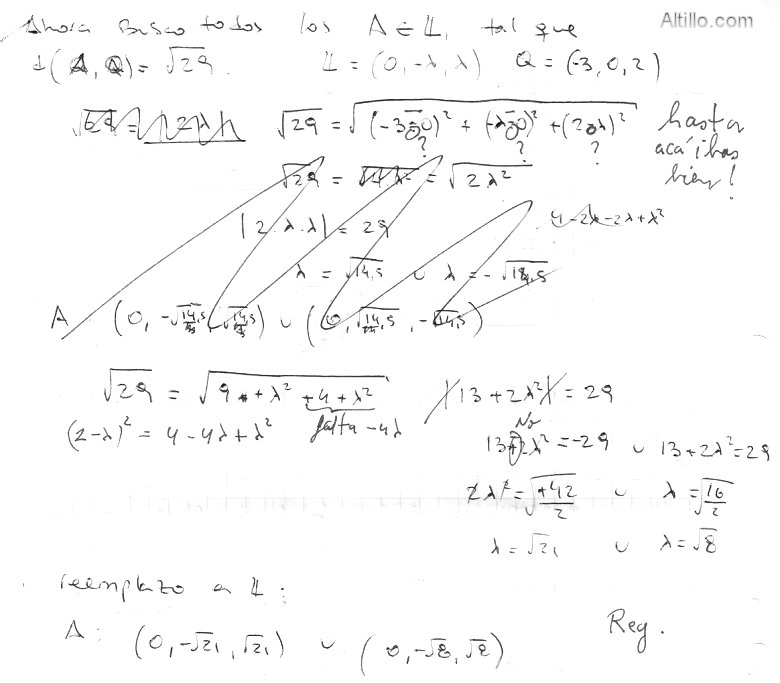 Altillo.com
Ahora Busco todos los A ∈ L, tal que
d(A, Q) = √29. L = (0, -λ, λ) Q = (-3, 0, 2)
√29 = √((-3-0)² + (-λ-0)² + (2-λ)²) hasta
? ? ? acá ibas
bien!
√29 = = √(2λ²)
|2·λ·λ| = 29 4-2λ-2λ+λ²
λ = √14,5 ∪ λ = -√14,5
A (0, -√14,5, √14,5) ∪ (0, √14,5, -√14,5)
√29 = √(9 + λ² + 4 + λ²) |13 + 2λ²| = 29
(2-λ)² = 4 - 4λ + λ² falta -4λ No
13+2λ² = -29 ∪ 13+2λ² = 29
2λ² = √(+42/2) ∪ λ = √(16/2)
λ = √21 ∪ λ = √8
reemplazo a L:
A: (0, -√21, √21) ∪ (0, -√8, √8) Reg.